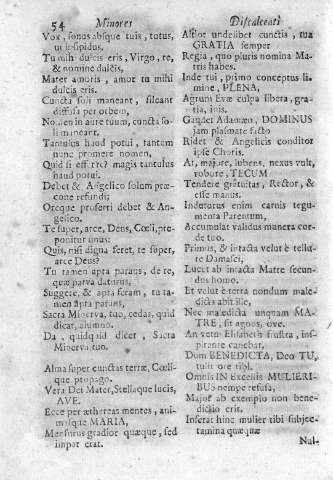 54 Minores Discalceati
Vox, sonus absque tuis, totus,
ut insipidus.
Tu mihi dulcis eris, Virgo, re,
& nomine dulcis,
Mater amoris, amor tu mihi
dulcis eris.
Cuncta soli maneant, sileant
diffusa per orbem,
Nomen in aure tuum, cuncta so-
li maneant.
Tantulus haud potui, tantum
nunc promere nomen,
Quid si efferre? magis tantulus
haud potui.
Debet & Angelico solum præ-
cone refundi;
Orcque proferri debet & An-
gelico.
Te super, arce, Deus, Cœli, præ-
ponitur unus:
Quis, nisi digna feret, te super,
arce Deus?
Tu tamen apta parans, de re,
quæ parva daturus,
Suggere, & apta feram, tu ta-
men apta parans,
Sacra Minerva, tuo, cedat, quid
dicat, alumno.
Da, quidquid dicet, Sacra
Minerva tuo.
Alma super cunctas terræ, Cœli-
que propago.
Vera Dei Mater, Stellaque lucis,
AVE.
Ecce per æthereas mentes, ani-
masque MARIA,
Mensurus gradior quæque, sed
impar erat.
Astor undelibet cunctis, tua
GRATIA semper
Regia, quo pluris nomina Ma-
tris habes.
Inde tui, primo conceptus li-
mine, PLENA,
Agrum Evæ culpa libera, gra-
tia, inis.
Gaudet Adamæo, DOMINUS
jam plasmate facto
Ridet & Angelicis conditor
ipse Choris.
At, majore, iubens, nexus vult,
robore, TECUM
Tendere gratuitas, Rector, &
esse manus.
Induturus enim carnis tegu-
menta Parentum,
Accumulat validus munera cor-
de tuo.
Primus, & intacta velut è tellu-
re Damasci,
Lucet ab intacta Matre secun-
dus homo.
Et velut è terra nondum male-
dicta abit ille,
Nec maledicta unquam MA-
TRE, fit agnos, ove.
An vetus Elisabeth frustra, insi-
pienter canebat,
Dum BENEDICTA, Deo TU,
tulit ore tibi.
Omnis IN Excelsis MULIERI-
BUS nempe refusa,
Major ab exemplo non bene-
dictio erit.
Inserat hinc mulier tibi subjec-
tamina quæquæ
Nul-